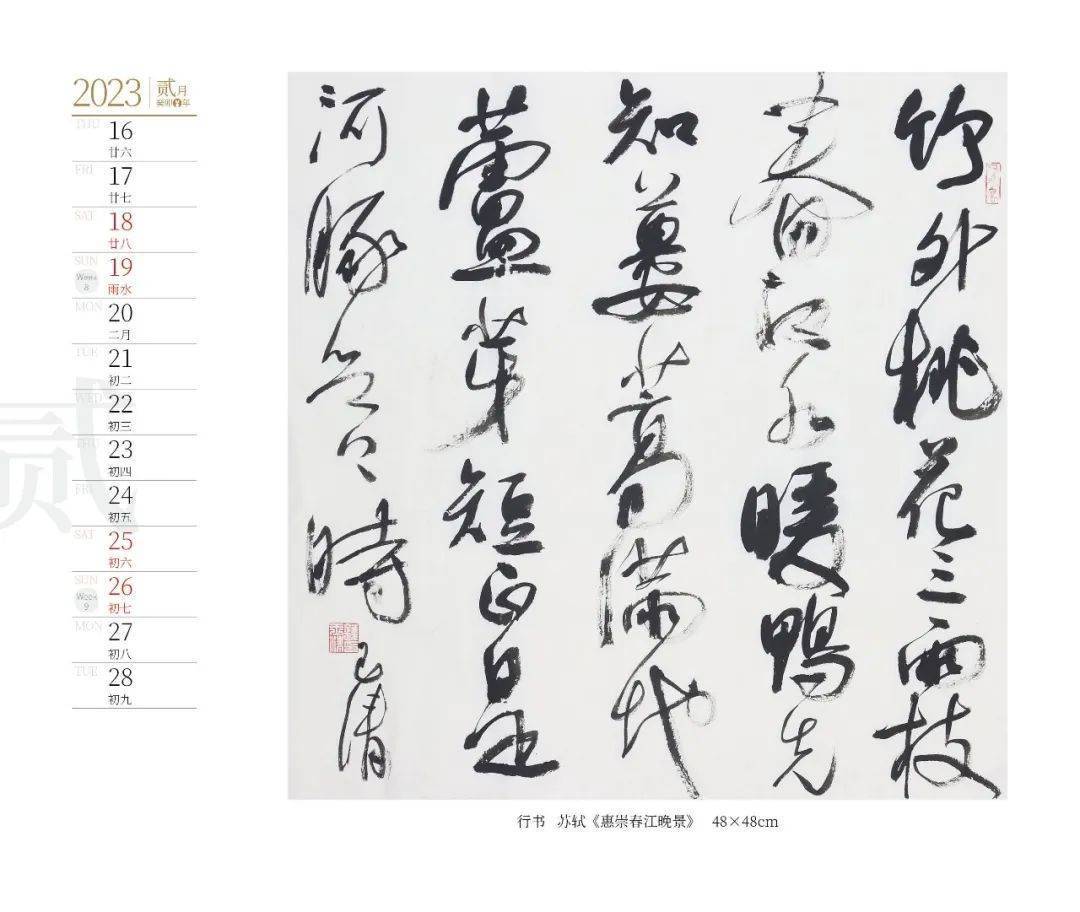 2023 贰月
癸卯年
THU 16
廿六
FRI 17
廿七
SAT 18
廿八
SUN 19
Week 8 雨水
MON 20
二月
TUE 21
初二
WED 22
初三
THU 23
初四
FRI 24
初五
SAT 25
初六
SUN 26
Week 9 初七
MON 27
初八
TUE 28
初九
贰
竹外桃花三兩枝
春江水暖鴨先
知蔞蒿滿地
蘆芽短正是
河豚欲上時
行书 苏轼《惠崇春江晚景》 48×48cm